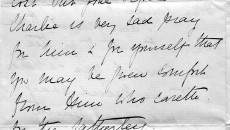 Charlie is very sad pray
for him & for yourself that
you may be given comfort
from Him who careth
for the fatherless